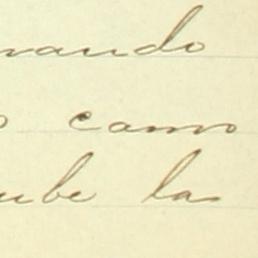 nando
o como
ube las